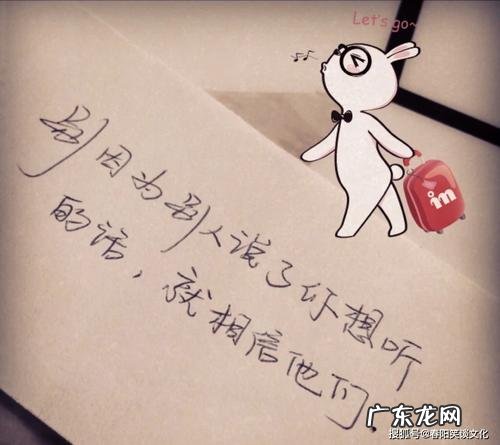 Let's go~
im
别因为别人说了你想听
的话，就相信他们
广东龙网
搜狐号@春阳笑谈文化